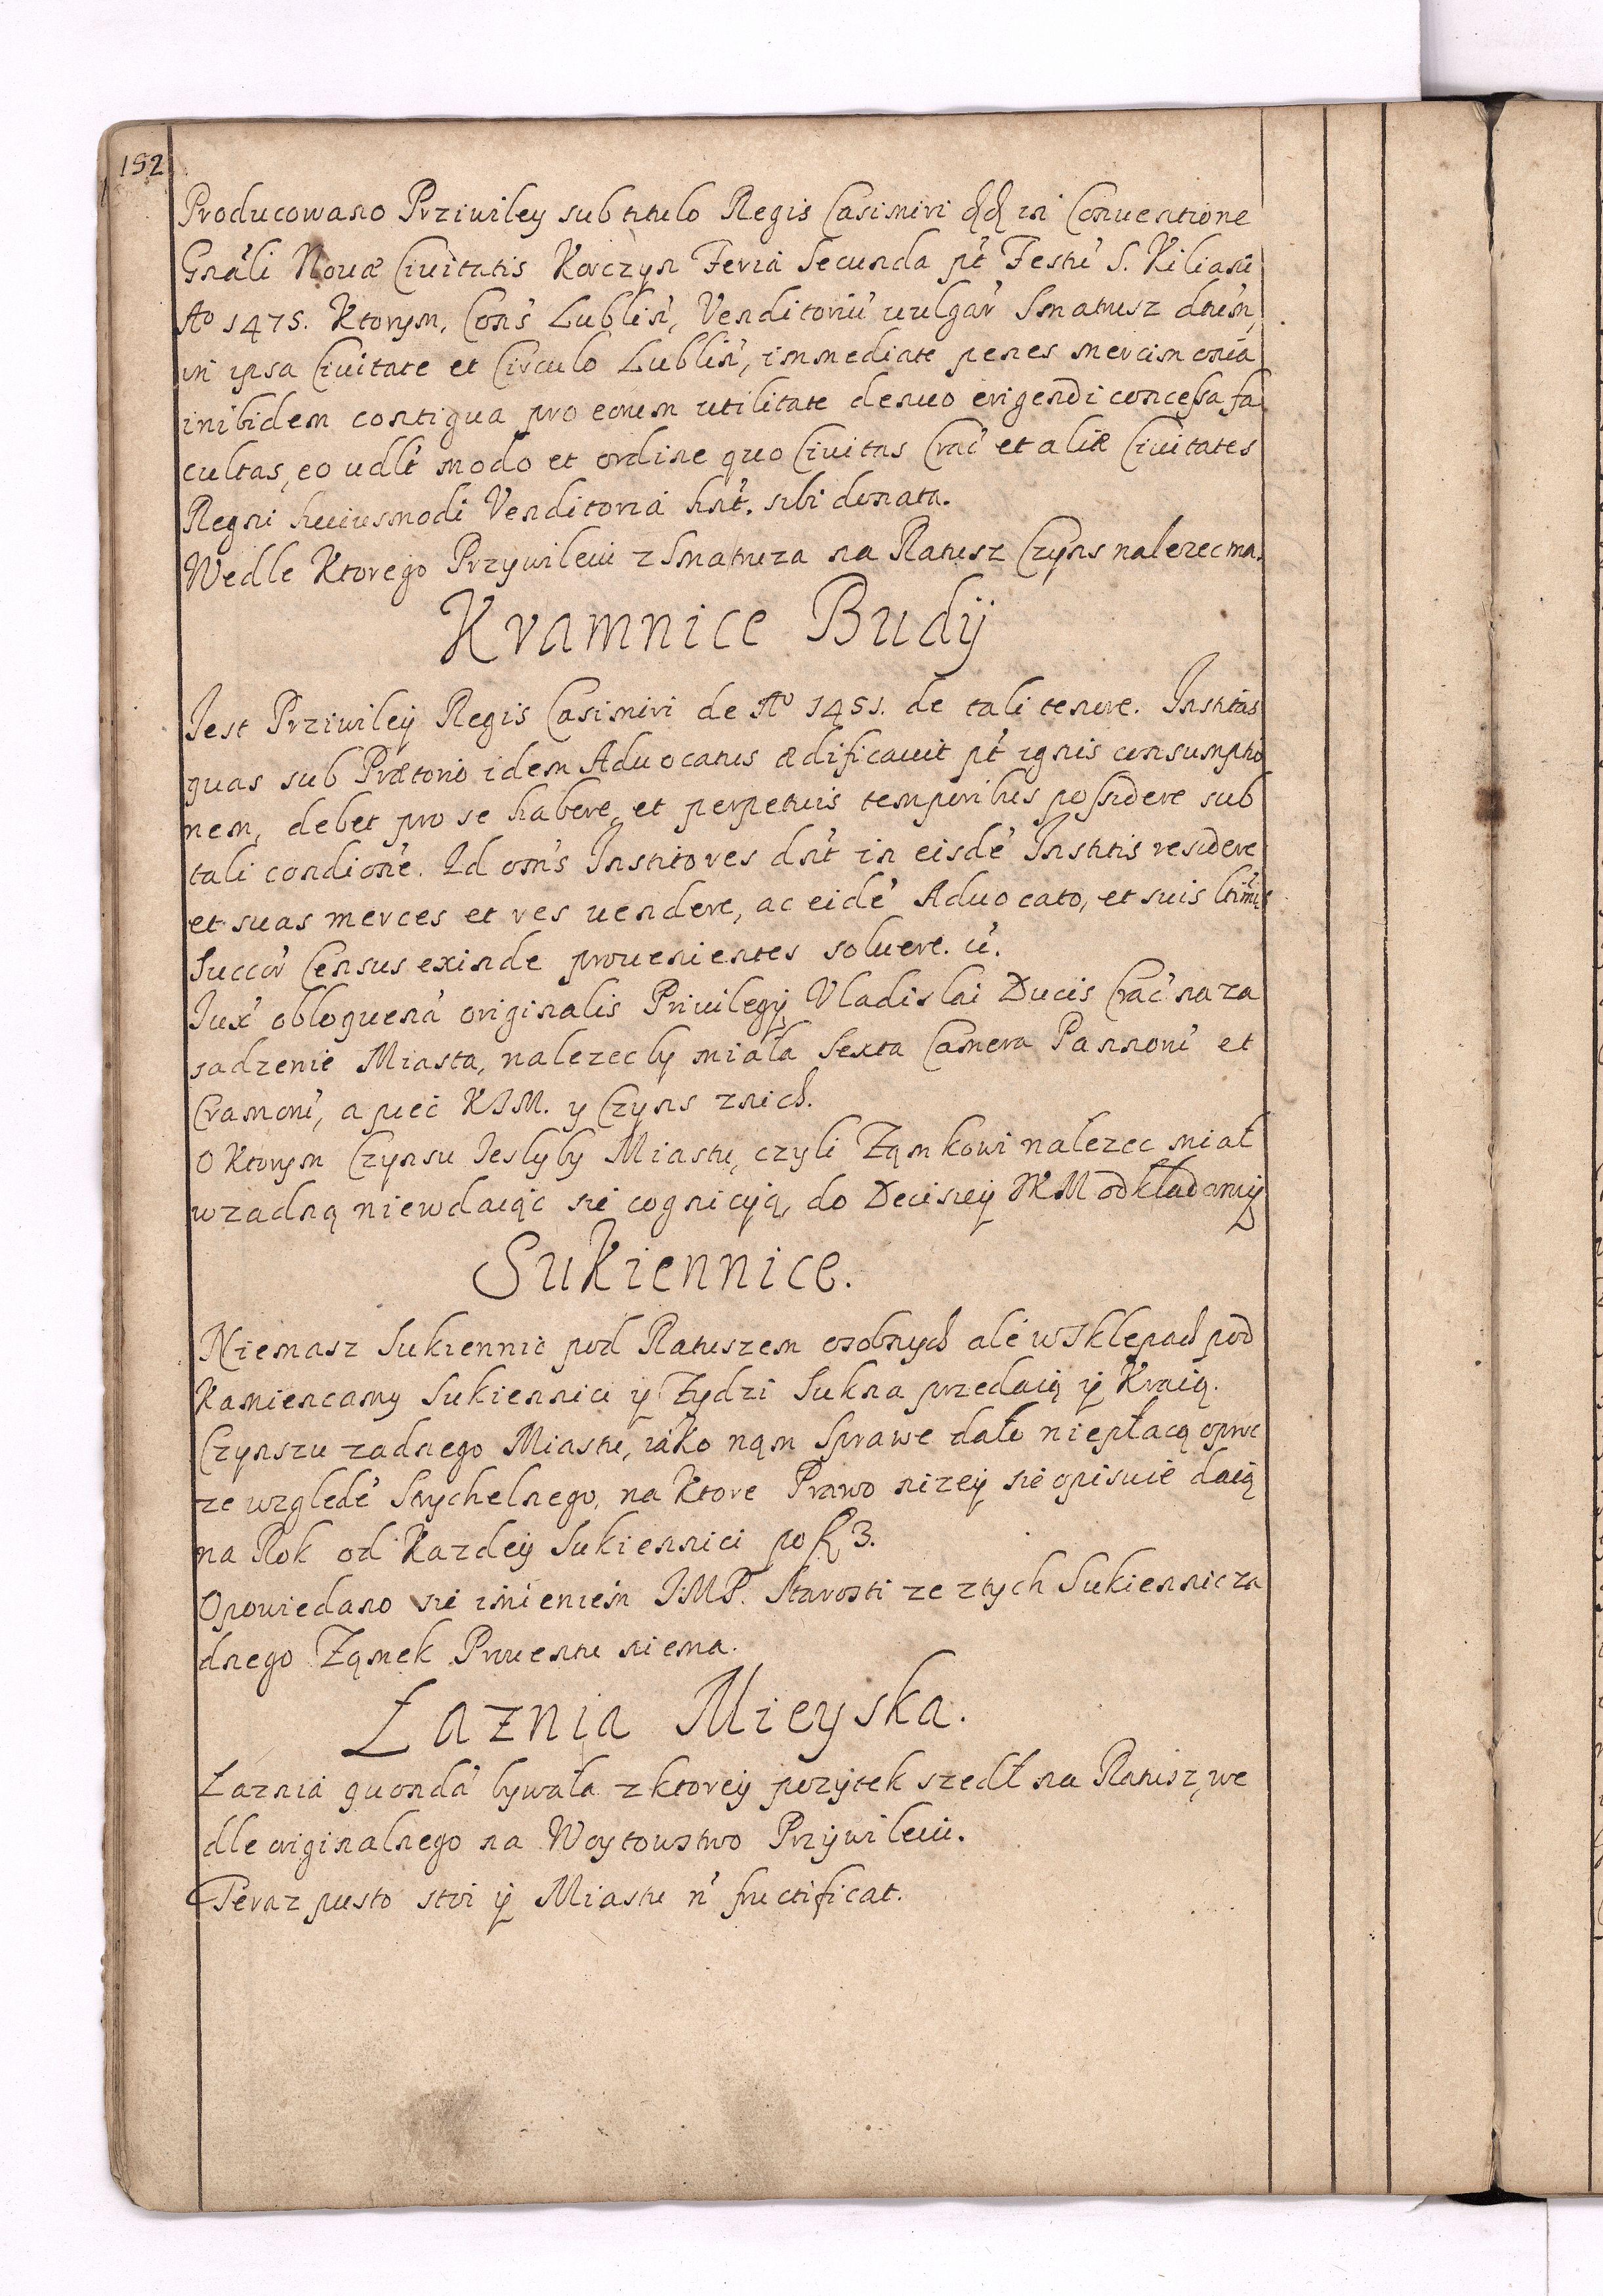 152
Producowano Prziwiley sub titulo Regis Casimiri dd in Conventione
Gnáli Nouæ Ciuitatis Korczyn Feria Secunda pt Festu S. Kiliani
Ao 1475. Ktorym, Cons Lublin, Venditoriu uulgar Smatrusz dictum,
in ipsa Ciuitate et Circulo Lublin, immediate penes mercimonia
inibidem contigua pro eorum utilitate denuo erigendi concessa fa
cultas, eo udlt modo et ordine quo Ciuitas Crac et aliæ Ciuitates
Regni huiusmodi Venditoria hnt. sibi donata.
Wedle Ktorego Przywileiu z Smatruza na Ratusz Czyns nalezec ma.
Kramnice Budÿ
Jest Prziwileÿ Regis Casimiri de Ao 1451. de tali tenore. Institas
quas sub Prætorio idem Aduocatus ædificauit pt ignis consumptio
nem, debet pro se habere et perpetuis temporibus possidere sub
tali condione. Id oms Institores dnt in eisde Institis residere
et suas merces et res uendere, ac eide Aduocato, et suis ltimis
Succor Census exinde prouenientes soluere. u.
Jux obloquena originalis Priuilegÿ Vladislai Ducis Crac na za
sadzenie Miasta, nalezec by miała Sexta Camera Pannoni et
Cramoni, a piec KJM. y Czyns znich.
O Ktorym Czynsu Jeslyby Miastu, czyli Ząmkowi nalezec miał
wzadną niewdaiąc sie cognicyią, do Decisiey JKM odkładamy
Sukiennice.
Niemasz Sukiennic pod Ratuszem osobnych ale w Sklepach pod
Kamiencamy Sukiennici ÿ Zydzi Sukna przedaią ÿ Kraią.
Czynszu zadnego Miastu, iako nąm Sprawe dało niepłacą opro
ze wzglede Strychelnego, na Ktore Prawo nizeÿ sie opisuie daią
na Rok od Kazdeÿ Sukiennici po fl 3.
Opowiedano sie imieniem JMP. Starosti ze ztych Sukiennic za
dnego Ząmek Prouentu niema.
Łaznia Mieyska.
Łaznia quonda bywała z ktoreÿ pozÿtek szedł na Ratusz, we
dle originalnego na Woytowstwo Przÿwileiu.
Teraz pusto stoi ÿ Miastu n fructificat.